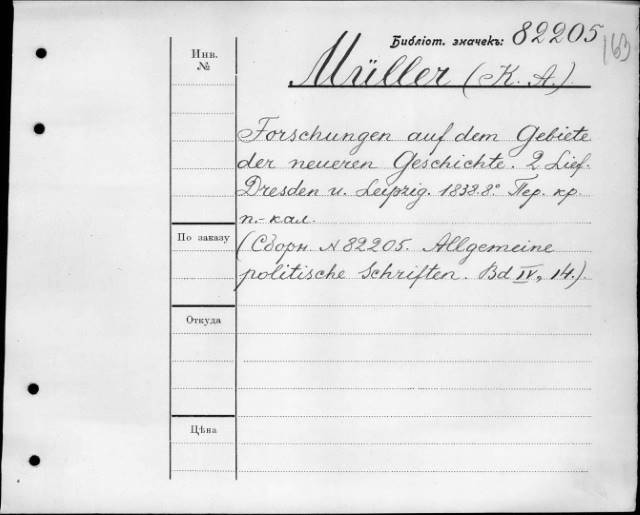 Библіот. значекъ: 82205
163
Инв.
№
Müller (K. A.)
Forschungen auf dem Gebiete
der neueren Geschichte. 2 Lief.
Dresden u. Leipzig. 1838. 8° Пер. кр.
п.-кал.
По заказу
(Сборн. N 82205. Allgemeine
politische Schriften. Bd IV, 14.).
Откуда
Цѣна